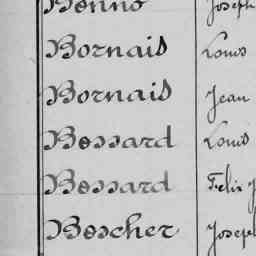 Bornais Louis
Bornais Jean
Bossard Louis
Bossard Felix J
Boscher Joseph